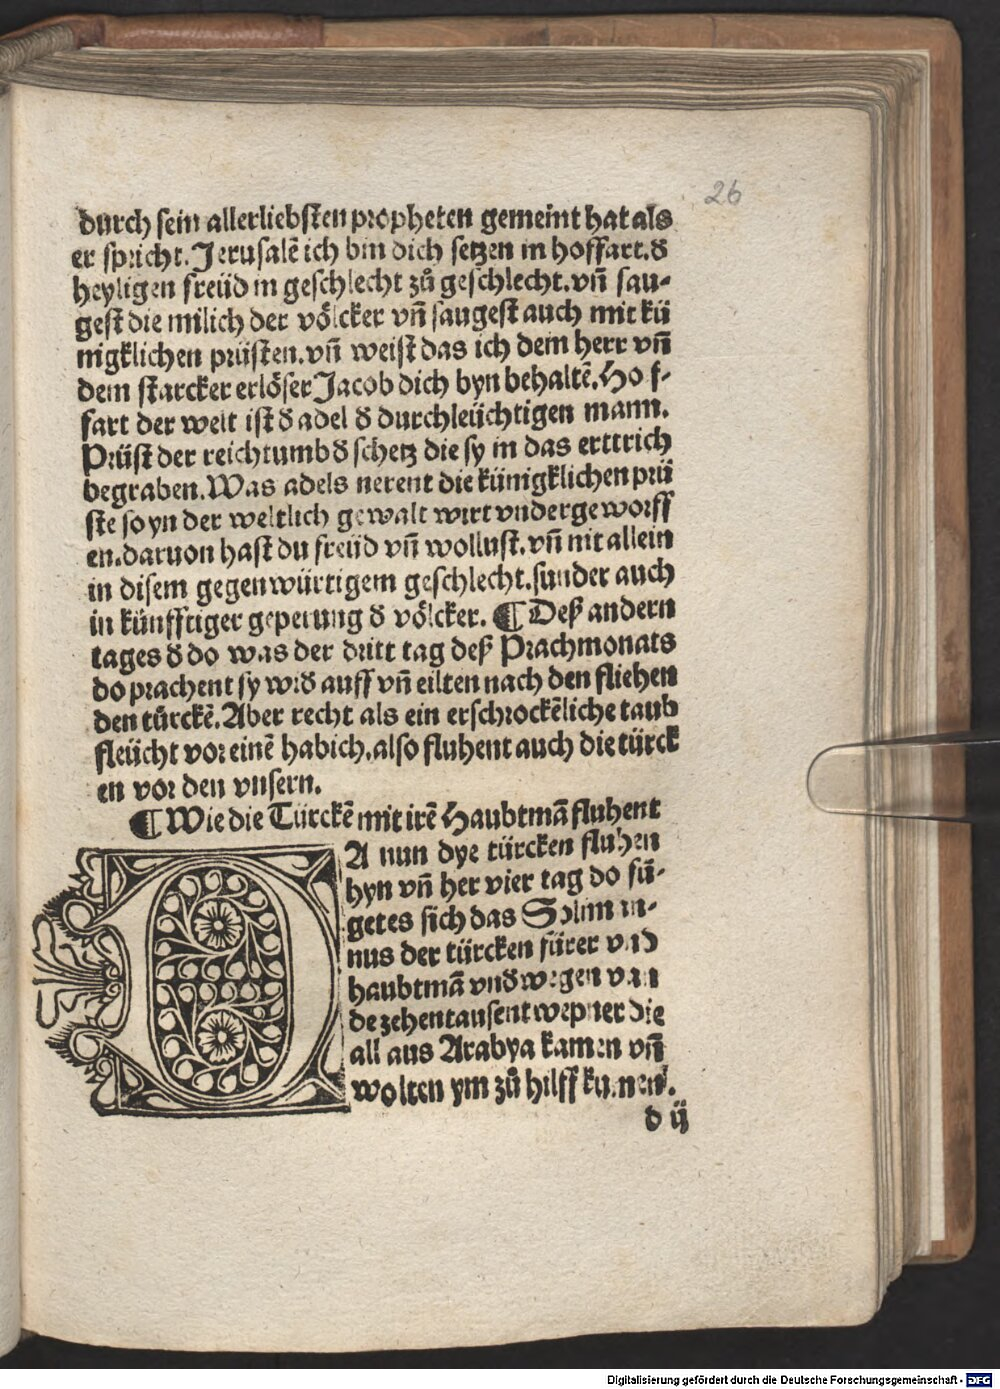 26
durch sein allerliebsten propheten gemeint hat als
er spricht. Jerusalē ich bin dich setzen in hoffart. d̕
heyligen freüd in geschlecht zů geschlecht. vñ sau-
gest die milich der völcker vñ saugest auch mit kü
nigklichen prüsten. vñ weist das ich dem herr vñ
dem starcker erlöser Jacob dich byn behaltē. Ho f-
fart der welt ist d̕ adel d̕ durchleüchtigen mann.
Prüst der reichtumb d̕ schetz die sy in das erttrich
begraben. Was adels nerent die künigklichen prü
ste so yn der weltlich gewalt wirt vndergeworff
en. daruon hast du freüd vñ wollust. vñ nit allein
in disem gegenwürtigem geschlecht. sunder auch
in künfftiger geperung d̕ völcker. ¶ Deß andern
tages d̕ do was der dritt tag deß Prachmonats
do prachent sy wid̕ auff vñ eilten nach den fliehen
den türckē. Aber recht als ein erschrockēliche taub
fleücht vor einē habich. also fluhent auch die türck
en vor den vnsern.
¶ Wie die Türckē mit irē Haubtmā fluhent
DA nun dye türcken fluhen
hyn vñ her vier tag do fü-
getes sich das Solim an-
nus der türcken fürer vnd
haubtmā vnd̕wegen van
de zehentausent wepner die
all aus Arabya kamen vñ
wolten ym zů hilff kumen.
d ij
Digitalisierung gefördert durch die Deutsche Forschungsgemeinschaft - DFG